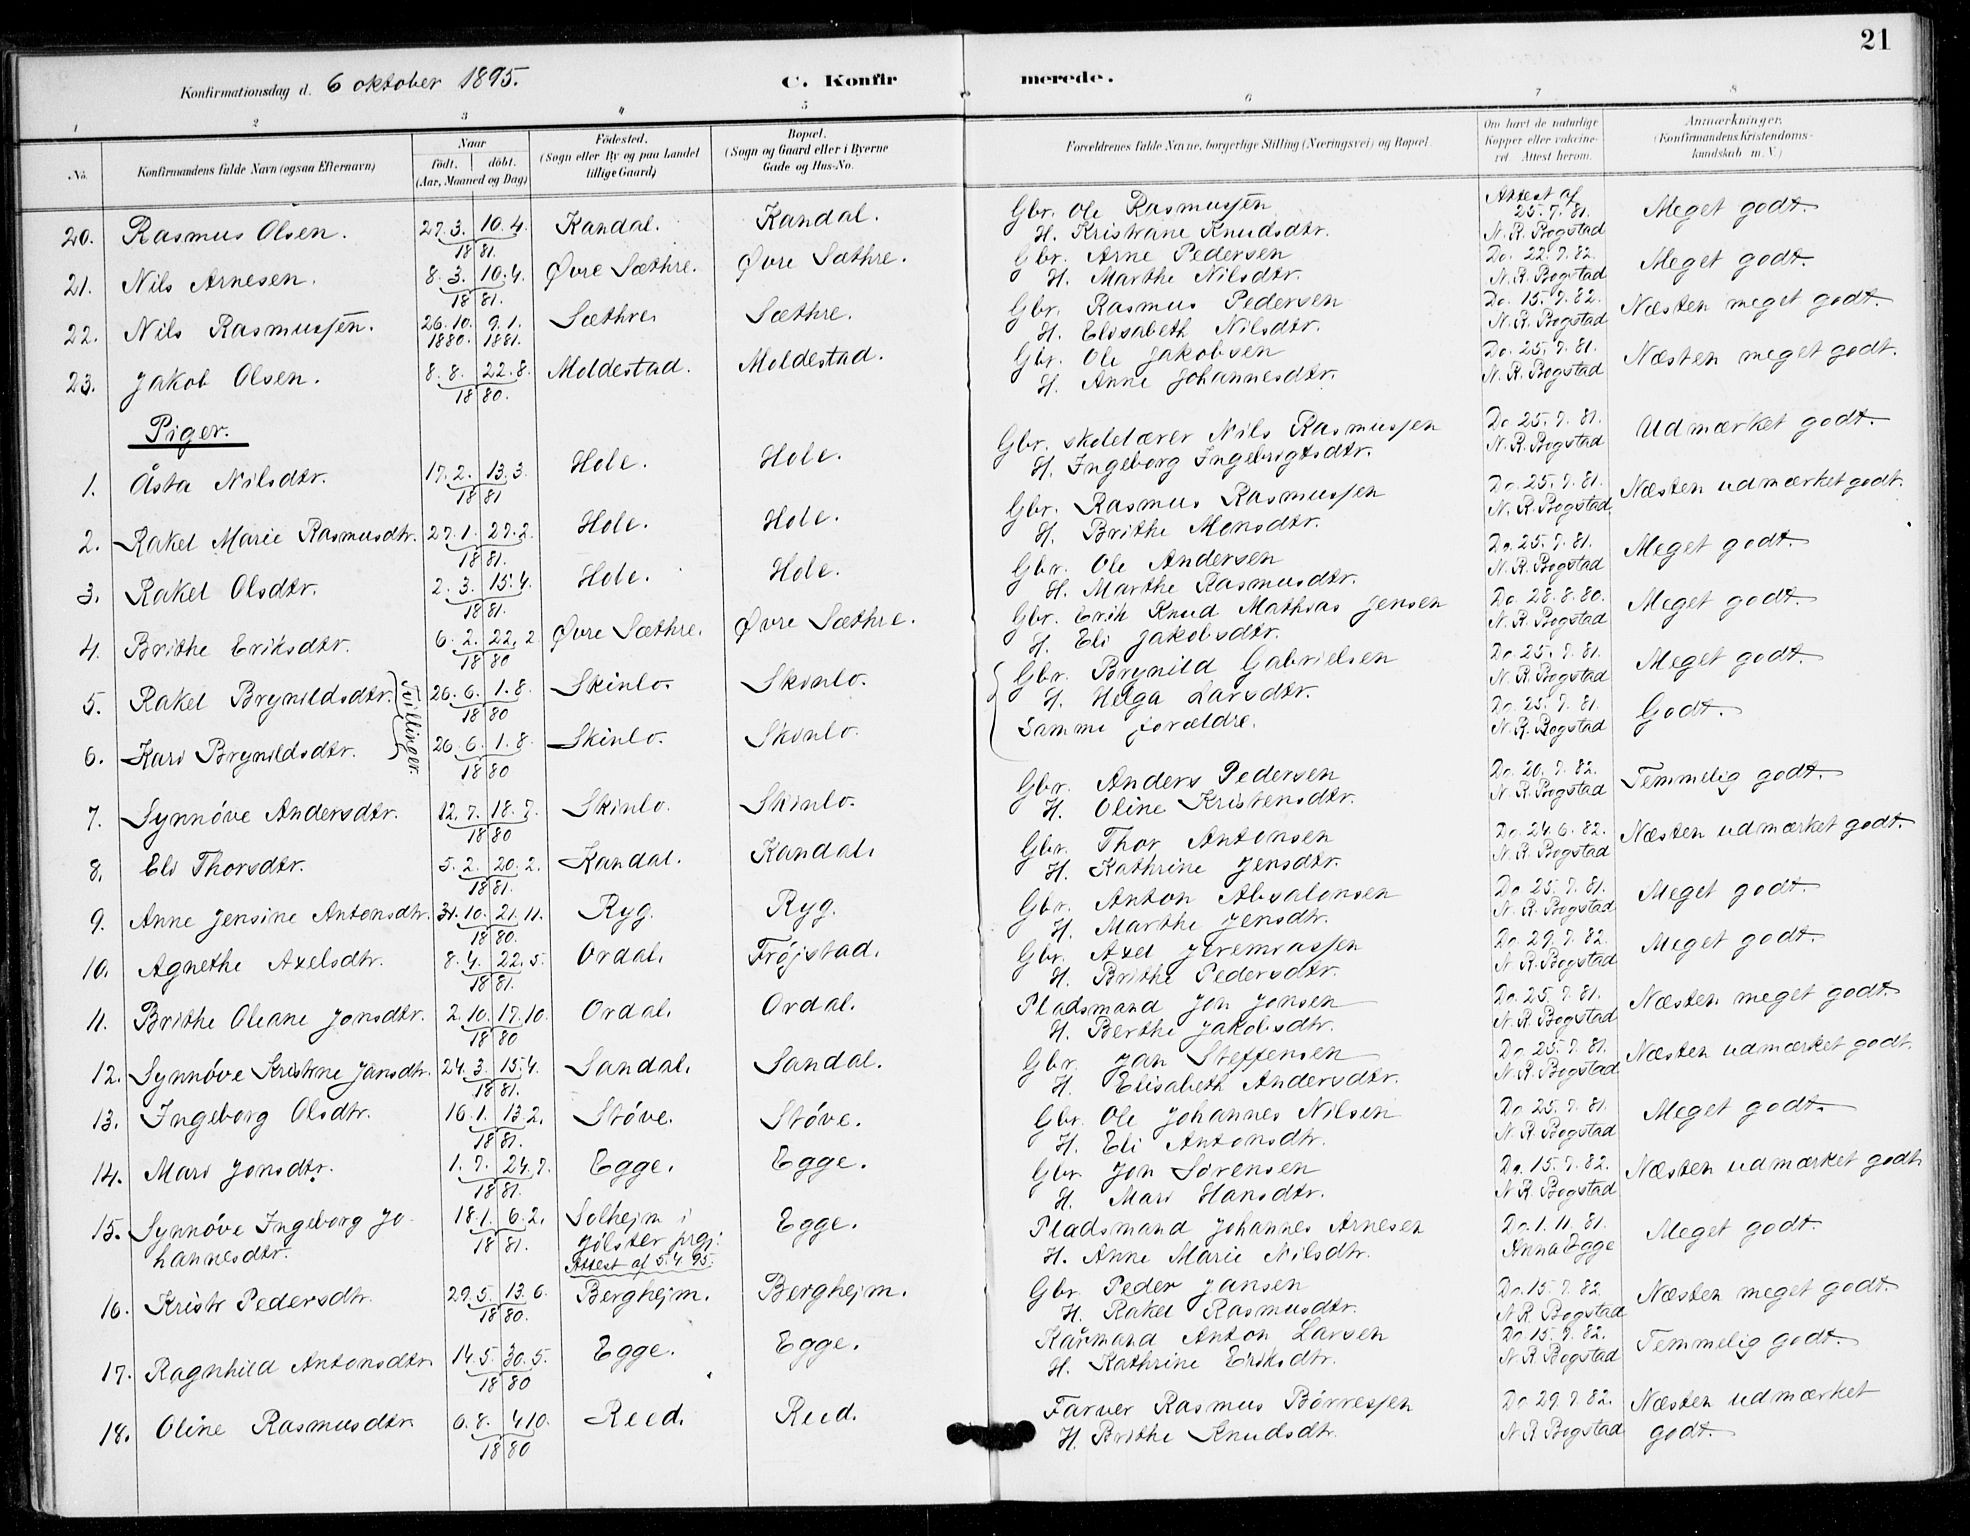 21
Konfirmationsdag d. 6 oktober 1895. C. Konfir merede.
1 2 3 4 5 6 7 8
No. Konfirmandens fulde Navn (ogsaa Efternavn) Naar født. døbt. (Aar, Maaned og Dag) Fødested. (Sogn eller By og paa Landet tillige Gaard) Bopæl. (Sogn og Gaard eller i Byerne Gade og Hus-No. Forældrenes fulde Navne, borgerlige Stilling (Næringsvei) og Bopæl. Om havt de naturlige Kopper eller vakcineret. Attest herom. Anmærkninger. (Konfirmandens Kristendomskundskab m. V.)
20. Rasmus Olsen. 27.3. 10.4. 1881. Kandal. Kandal. Gbr. Ole Rasmussen Attest af 25.7.81. Meget godt.
H. Kristiane Knudsdtr. N. R. Bogstad
21. Nils Arnesen. 8.3. 10.4. 1881. Øvre Sæthre. Øvre Sæthre. Gbr. Arne Pedersen Do. 22.7.82. Meget godt.
H. Marthe Nilsdtr. N. R. Bogstad
22. Nils Rasmussen. 26.10. 1880. 9.1. 1881. Sæthre Sæthre. Gbr. Rasmus Pedersen Do. 15.7.82. Næsten meget godt.
H. Elisabeth Nilsdtr. N. R. Bogstad
23. Jakob Olsen. 8.8. 22.8. 1880. Moldestad. Moldestad. Gbr. Ole Jakobsen Do. 25.7.81. Næsten meget godt.
H. Anne Johannesdtr. N. R. Bogstad
Piger.
1. Åsta Nilsdtr. 17.2. 13.3. 1881 Hole. Hole. Gbr. skolelærer Nils Rasmussen Do 25.7.81. Udmærket godt.
H. Ingeborg Ingebrigtsdtr. N. R. Bogstad
2. Rakel Marie Rasmusdtr. 27.1. 27.2. 1881. Hole. Hole. Gbr. Rasmus Rasmussen Do. 25.7.81. Næsten udmærket godt.
H. Brithe Monsdtr. N. R. Bogstad
3. Rakel Olsdtr. 2.3. 15.4. 1881. Hole. Hole. Gbr. Ole Andersen Do. 25.7.81. Meget godt.
H. Marthe Rasmusdtr. N. R. Bogstad
4. Brithe Eriksdtr. 6.2. 22.2 1880 Øvre Sæthre. Øvre Sæthre. Gbr. Erik Knud Mathias Jensen Do. 28.8.80. Meget godt.
H. Eli Jakobsdtr. N. R. Bogstad
5. Rakel Brynildsdtr. Tvillinger. 26.6. 1.8. 1880 Skinlo. Skinlo. Gbr. Brynild Gabrielsen Do. 25.7.81. Meget godt.
H. Helga Larsdtr. N. R. Bogstad
6. Kari Brynildsdtr. 26.6. 1.8. 1880 Skinlo. Skinlo. Samme forældre. Do. 25.7.81. Godt.
N. R. Bogstad
7. Synnøve Andersdtr. 12.7. 18.7. 1880 Skinlo. Skinlo. Gbr. Anders Pedersen Do. 20.7.82. Temmelig godt.
H. Oline Kristensdtr. N. R. Bogstad
8. Eli Thorsdtr. 5.2. 20.2. 1881. Kandal. Kandal. Gbr. Thor Antonsen Do. 24.6.82. Næsten udmærket godt.
H. Kathrine Jensdtr. N. R. Bogstad
9. Anne Jensine Antonsdtr. 31.10. 21.11. 1880. Ryg. Ryg. Gbr. Anton Absalonsen Do 25.7.81. Meget godt.
H. Marthe Jensdtr. N. R. Bogstad
10. Agnethe Axelsdtr. 8.4. 22.5. 1881. Ordal. Frøjstad. Gbr. Axel Jeremiassen Do 29.7.82. Meget godt.
H. Brithe Pedersdtr. N. R. Bogstad
11. Brithe Oleane Jonsdtr. 2.10. 17.10. 1880 Ordal. Ordal. Pladsmand Jon Jonsen Do. 25.7.81. Næsten meget godt.
H. Berthe Jakobsdtr. N. R. Bogstad
12. Synnøve Kristine Jansdtr. 24.3. 15.4. 1881. Sandal. Sandal. Gbr. Jan Steffensen Do 25.7.81. Næsten udmærket godt.
H. Elisabeth Andersdtr. N. R. Bogstad
13. Ingeborg Olsdtr. 16.1. 13.2. 1881. Støve. Støve. Gbr. Ole Johannes Nilsen Do 25.7.81. Meget godt.
H. Eli Antonsdtr. N. R. Bogstad
14. Mari Jonsdtr. 1.7. 24.7. 1881. Egge. Egge. Gbr. Jon Sørensen Do. 15.7.82. Næsten udmærket godt.
H. Mari Hansdtr. N. R. Bogstad
15. Synnøve Ingeborg Jo- 18.1. 6.2. 1881. Solhejm i Egge. Pladsmand Johannes Arnesen Do. 1.11.81. Meget godt.
hannesdtr. Jølster prgj: H. Anne Marie Nilsdtr. Anna Egge
Attest af 5.4 95.
16. Kristi Pedersdtr. 29.5. 13.6. 1880. Berghejm. Berghejm. Gbr. Peder Jansen Do. 15.7.82. Næsten meget godt.
H. Rakel Rasmusdtr. N. R. Bogstad
17. Ragnhild Antonsdtr. 14.5. 30.5. 1880 Egge. Egge. Kårmand Anton Larsen Do. 15.7.82. Temmelig godt.
H. Kathrine Eriksdtr. N. R. Bogstad
18. Oline Rasmusdtr. 6.8. 4.10. 1880 Reed. Reed. Farver Rasmus Børresen Do 29.7.82. Næsten udmærket
H. Brithe Knudsdtr. N. R. Bogstad godt.